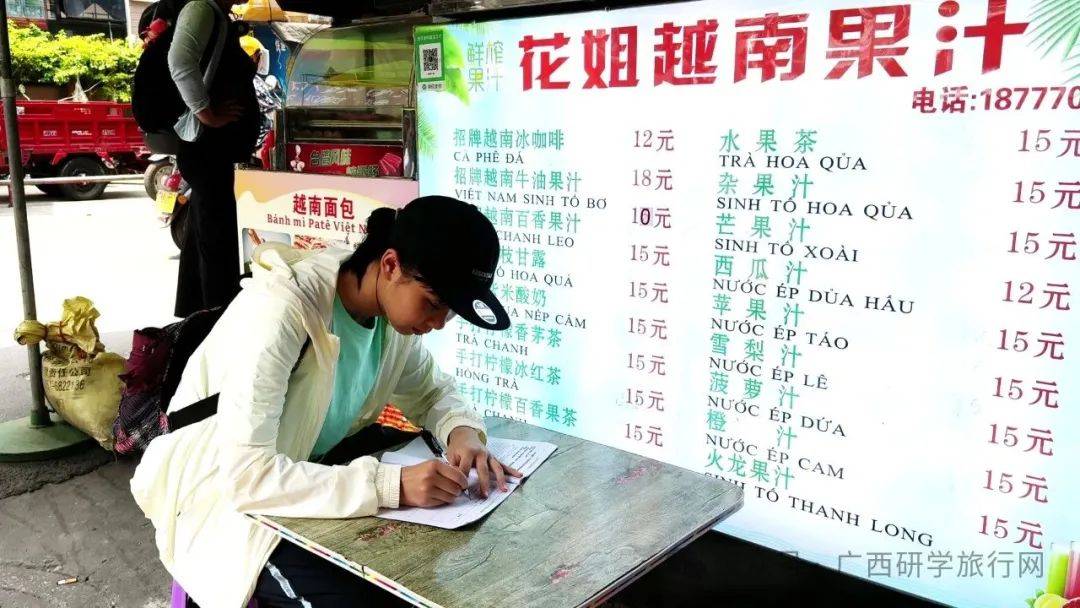 鲜榨
果汁
花姐越南果汁
电话:187770
招牌越南冰咖啡 12元
CA PHÊ ĐÁ
招牌越南牛油果汁 18元
VIỆT NAM SINH TỐ BƠ
越南百香果汁 10元
CHANH LEO
枝甘露 15元
TỐ HOA QUẢ
米酸奶 15元
NẾP CẨM
手打柠檬香茅茶 15元
TRÀ CHANH
手打柠檬冰红茶 15元
HỒNG TRÀ
手打柠檬百香果茶 15元
CHANH
15元
水果茶 15元
TRÀ HOA QỦA
杂果汁 15元
SINH TỐ HOA QỦA
芒果汁 15元
SINH TỐ XOÀI
西瓜汁 12元
NƯỚC ÉP DỦA HẤU
苹果汁 15元
NƯỚC ÉP TÁO
雪梨汁 15元
NƯỚC ÉP LÊ
菠萝汁 15元
NƯỚC ÉP DỨA
橙汁 15元
NƯỚC ÉP CAM
火龙果汁 15元
SINH TỐ THANH LONG
台湾风味
越南面包
Bánh mì Patê Việt N
责任公司
广西研学旅行网